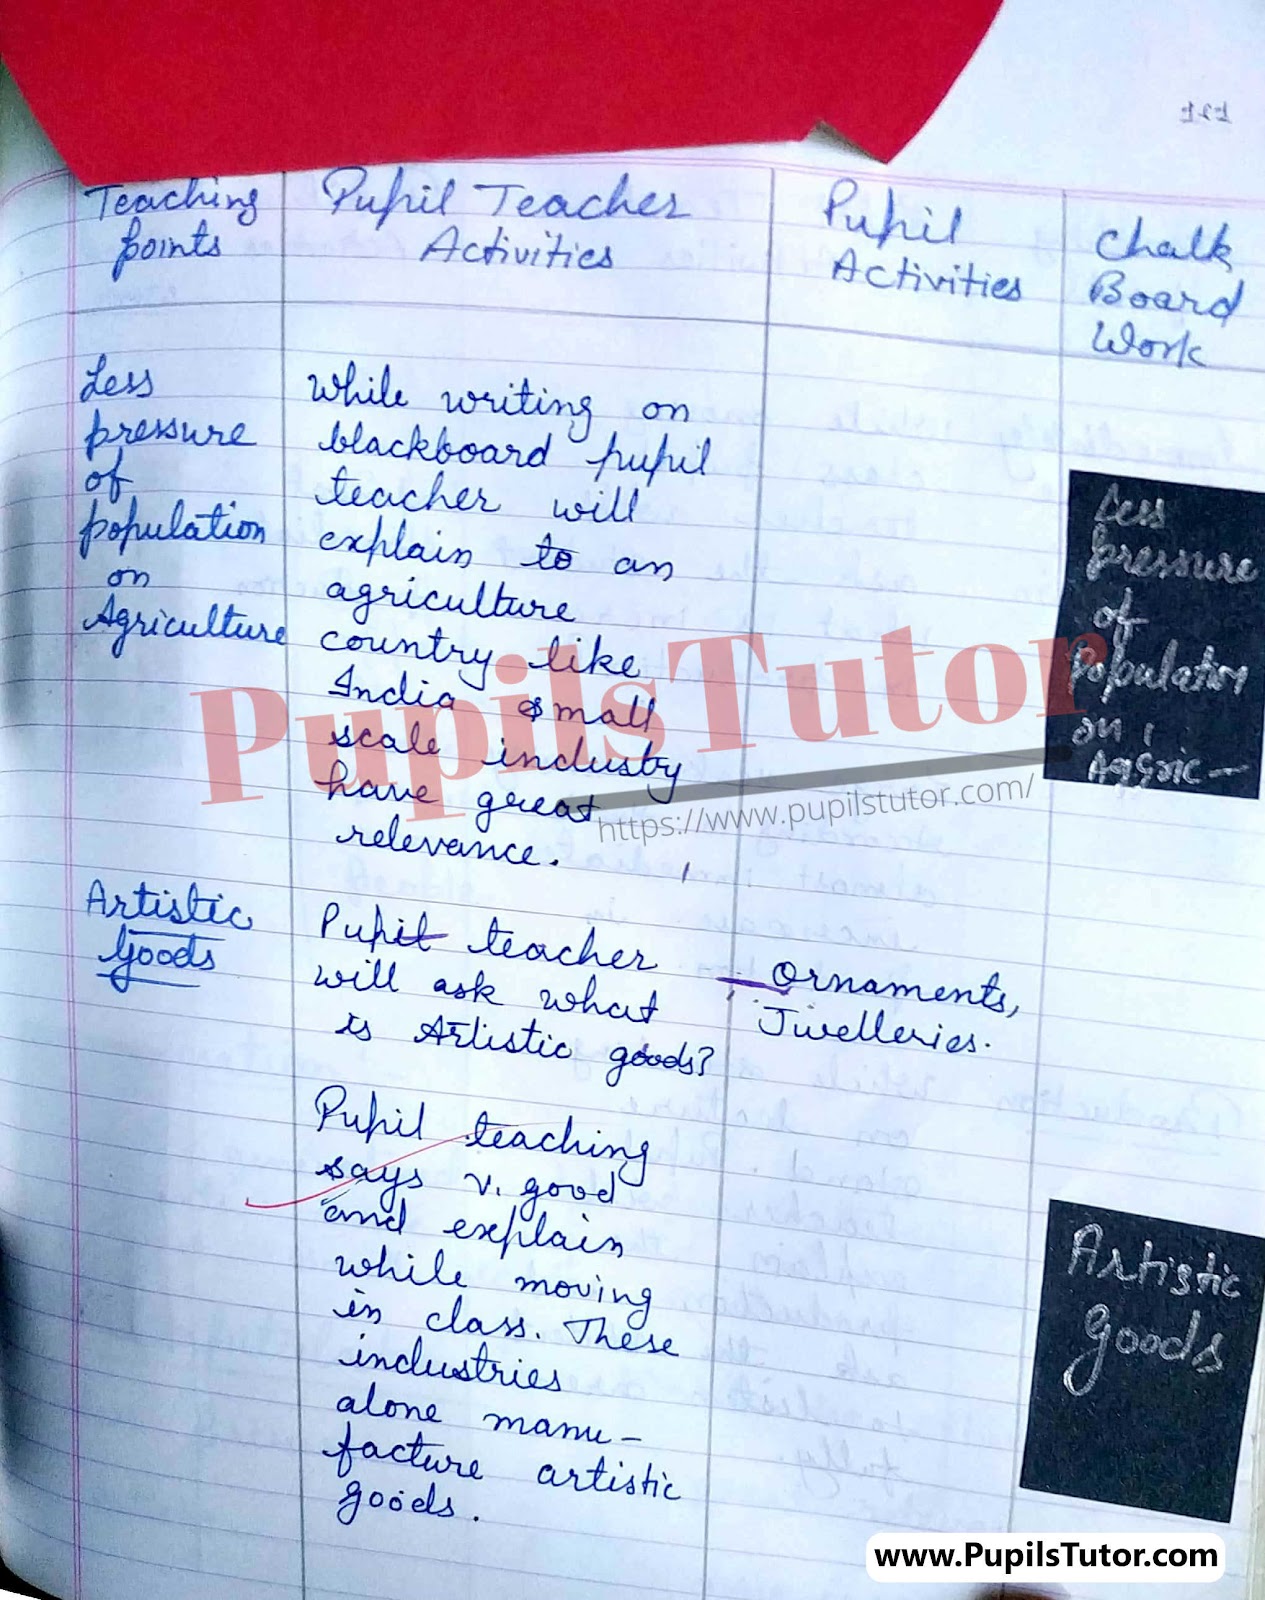 Teaching
points
Pupil Teacher
Activities
Pupil
Activities
Chalk
Board
Work
Less
pressure
of
population
on
Agriculture
While writing on
blackboard pupil
teacher will
explain to an
agriculture
country like
India small
scale industry
have great
relevance.
Less
pressure
of
Population
on
Aggric-
PupilsTutor
https://www.pupilstutor.com/
Artistic
Goods
Pupil teacher
will ask what
is Artistic goods?
- Ornaments,
Jwelleries.
Pupil teaching
says v. good
and explain
while moving
in class. These
industries
alone manu-
facture artistic
goods.
Artistic
goods
www.PupilsTutor.com